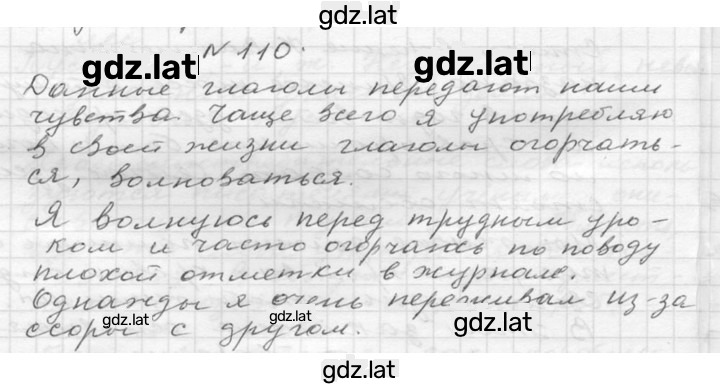 gdz.lat
№ 110.
gdz.lat gdz.lat
Данные глаголы передают наши
чувства. Чаще всего я употребляю
в своей жизни глаголы огорчать-
ся, волноваться.
Я волнуюсь перед трудным уро-
ком и часто огорчаюсь по поводу
плохой отметки в журнале.
Однажды я очень переживал из-за
ссоры с другом.
gdz.lat gdz.lat gdz.lat
gdz.lat